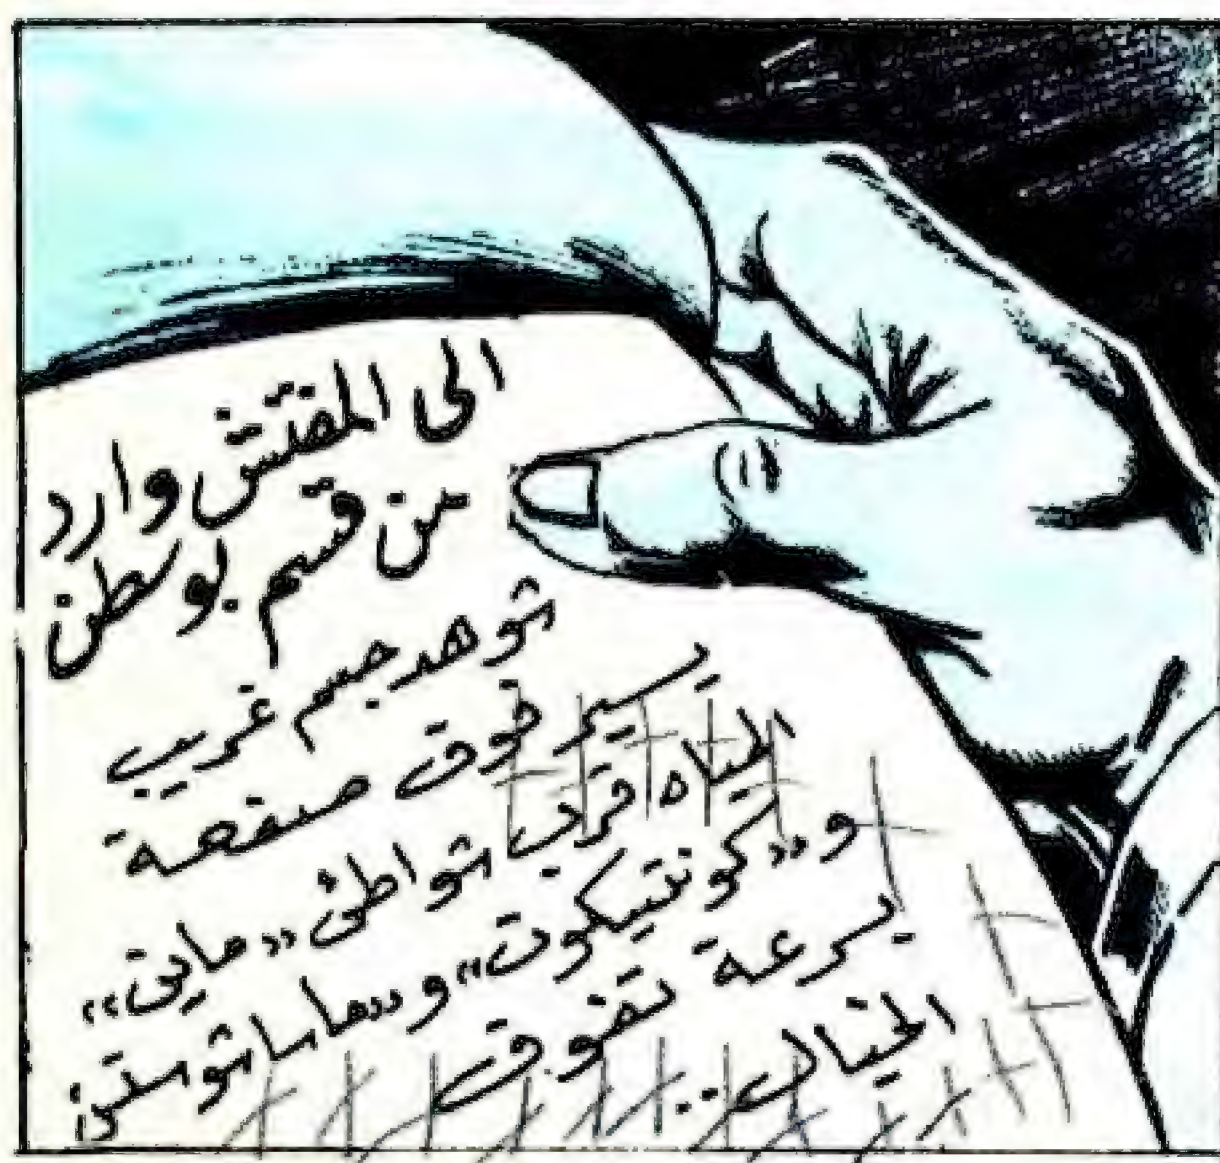 الى المفتش وارد
من قسم بوسطن
شوهد جسم غريب
يسير فوق صفحة
المياه قرب شواطئ «ماين»
و«كونتيكوت» و«ماساشوستس
بسرعة تفوق
الخيال..